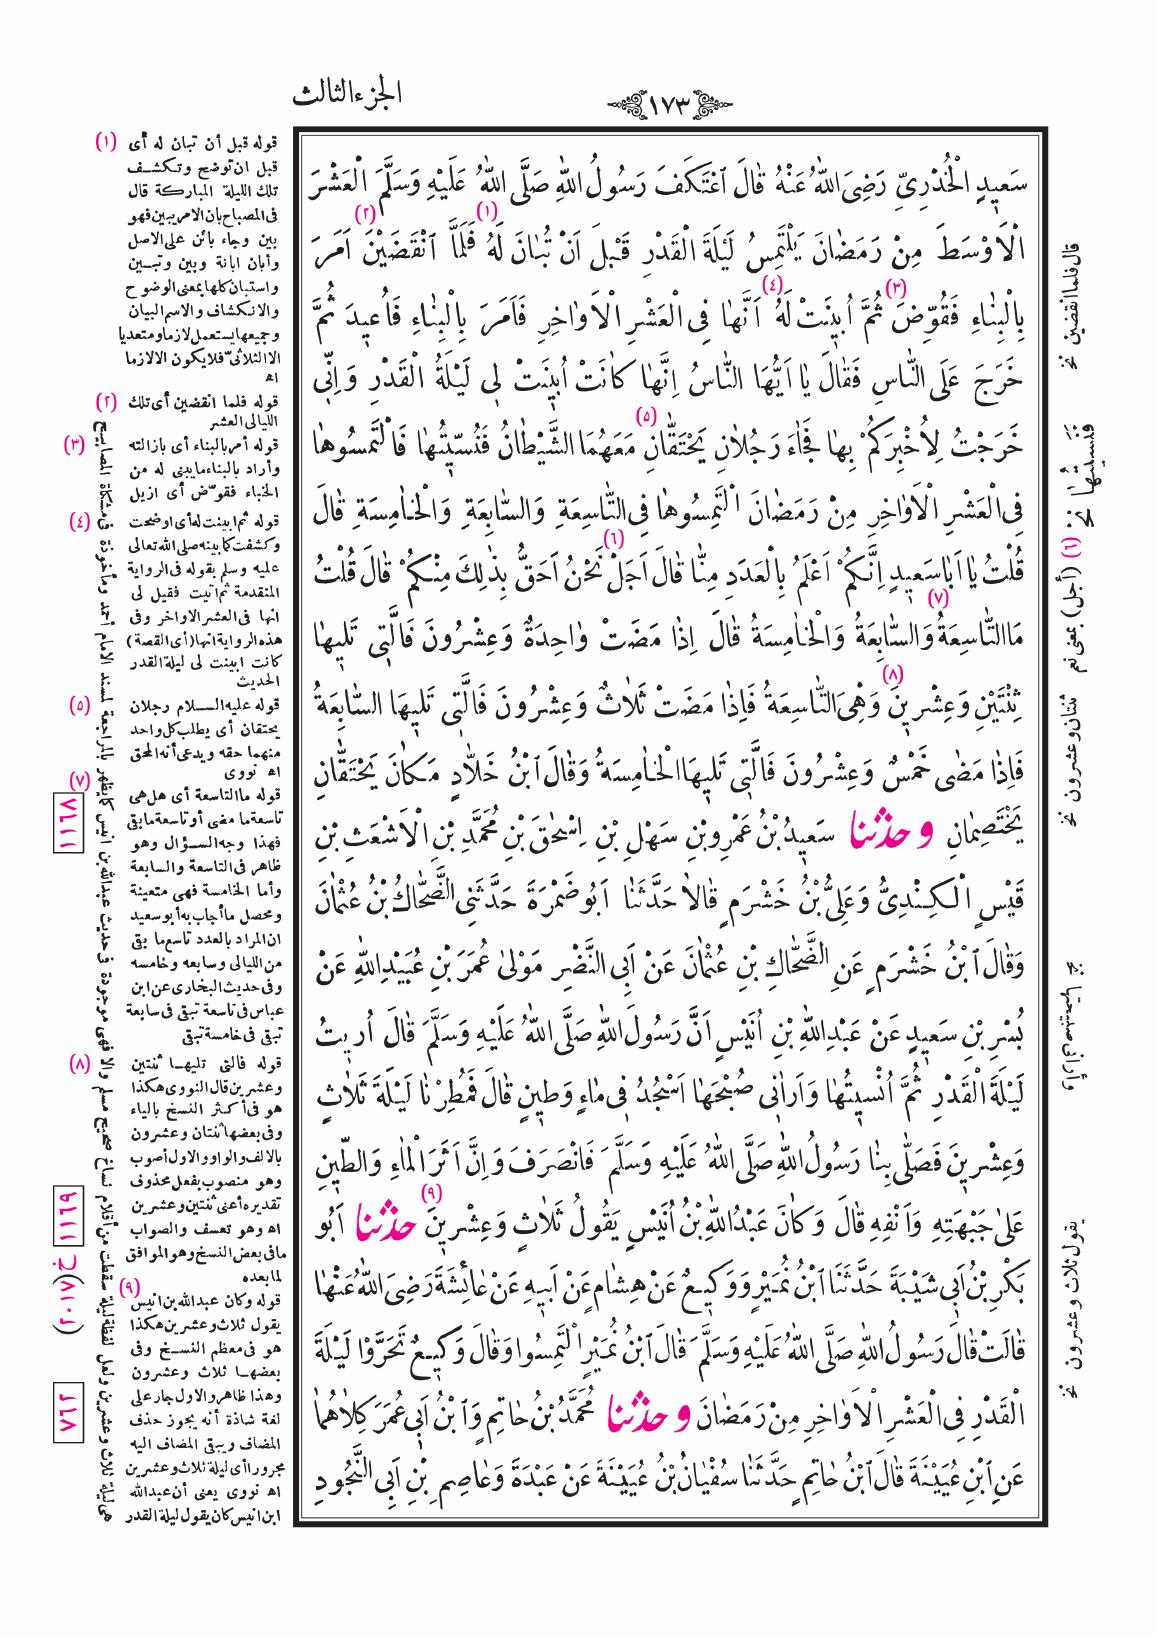 الجزء الثالث
١٧٣
سَعِيدٍ الْخُدْرِيِّ رَضِيَ اللّٰهُ عَنْهُ قَالَ اعْتَكَفَ رَسُولُ اللّٰهِ صَلَّى اللّٰهُ عَلَيْهِ وَسَلَّمَ الْعَشْرَ
الْاَوْسَطَ مِنْ رَمَضَانَ يَلْتَمِسُ لَيْلَةَ الْقَدْرِ قَبْلَ اَنْ تُبَانَ لَهُ (١) فَلَمَّا انْقَضَيْنَ (٢) اَمَرَ
بِالْبِنَاءِ فَقُوِّضَ (٣) ثُمَّ اُبِينَتْ لَهُ (٤) اَنَّهَا فِى الْعَشْرِ الْاَوَاخِرِ فَاَمَرَ بِالْبِنَاءِ فَاُعِيدَ ثُمَّ
خَرَجَ عَلَى النَّاسِ فَقَالَ يَا اَيُّهَا النَّاسُ اِنَّهَا كَانَتْ اُبِينَتْ لِى لَيْلَةُ الْقَدْرِ وَاِنِّى
خَرَجْتُ لِاُخْبِرَكُمْ بِهَا فَجَاءَ رَجُلَانِ يَحْتَقَّانِ (٥) مَعَهُمَا الشَّيْطَانُ فَنُسِّيتُهَا فَالْتَمِسُوهَا
فِى الْعَشْرِ الْاَوَاخِرِ مِنْ رَمَضَانَ الْتَمِسُوهَا فِى التَّاسِعَةِ وَالسَّابِعَةِ وَالْخَامِسَةِ قَالَ
قُلْتُ يَا اَبَا سَعِيدٍ اِنَّكُمْ اَعْلَمُ بِالْعَدَدِ مِنَّا قَالَ اَجَلْ (٦) نَحْنُ اَحَقُّ بِذٰلِكَ مِنْكُمْ قَالَ قُلْتُ
مَا التَّاسِعَةُ (٧) وَالسَّابِعَةُ وَالْخَامِسَةُ قَالَ اِذَا مَضَتْ وَاحِدَةٌ وَعِشْرُونَ فَالَّتِى تَلِيهَا
ثِنْتَيْنِ وَعِشْرِينَ (٨) وَهِىَ التَّاسِعَةُ فَاِذَا مَضَتْ ثَلَاثٌ وَعِشْرُونَ فَالَّتِى تَلِيهَا السَّابِعَةُ
فَاِذَا مَضٰى خَمْسٌ وَعِشْرُونَ فَالَّتِى تَلِيهَا الْخَامِسَةُ وَقَالَ ابْنُ خَلَّادٍ مَكَانَ يَحْتَقَّانِ
يَخْتَصِمَانِ وحَدَّثَنَا سَعِيدُ بْنُ عَمْرِو بْنِ سَهْلِ بْنِ اِسْحٰقَ بْنِ مُحَمَّدِ بْنِ الْاَشْعَثِ بْنِ
قَيْسٍ الْكِنْدِىُّ وَعَلِىُّ بْنُ خَشْرَمٍ قَالَا حَدَّثَنَا اَبُو ضَمْرَةَ حَدَّثَنِى الضَّحَّاكُ بْنُ عُثْمَانَ
وَقَالَ ابْنُ خَشْرَمٍ عَنِ الضَّحَّاكِ بْنِ عُثْمَانَ عَنْ اَبِى النَّضْرِ مَوْلٰى عُمَرَ بْنِ عُبَيْدِ اللّٰهِ عَنْ
بُسْرِ بْنِ سَعِيدٍ عَنْ عَبْدِ اللّٰهِ بْنِ اُنَيْسٍ اَنَّ رَسُولَ اللّٰهِ صَلَّى اللّٰهُ عَلَيْهِ وَسَلَّمَ قَالَ اُرِيتُ
لَيْلَةَ الْقَدْرِ ثُمَّ اُنْسِيتُهَا وَاَرَانِى صُبْحَهَا اَسْجُدُ فِى مَاءٍ وَطِينٍ قَالَ فَمُطِرْنَا لَيْلَةَ ثَلَاثٍ
وَعِشْرِينَ فَصَلّٰى بِنَا رَسُولُ اللّٰهِ صَلَّى اللّٰهُ عَلَيْهِ وَسَلَّمَ فَانْصَرَفَ وَاِنَّ اَثَرَ الْمَاءِ وَالطِّينِ
عَلٰى جَبْهَتِهِ وَاَنْفِهِ قَالَ وَكَانَ عَبْدُ اللّٰهِ بْنُ اُنَيْسٍ يَقُولُ ثَلَاثٍ وَعِشْرِينَ (٩) حَدَّثَنَا اَبُو
بَكْرِ بْنُ اَبِى شَيْبَةَ حَدَّثَنَا ابْنُ نُمَيْرٍ وَوَكِيعٌ عَنْ هِشَامٍ عَنْ اَبِيهِ عَنْ عَائِشَةَ رَضِىَ اللّٰهُ عَنْهَا
قَالَتْ قَالَ رَسُولُ اللّٰهِ صَلَّى اللّٰهُ عَلَيْهِ وَسَلَّمَ قَالَ ابْنُ نُمَيْرٍ الْتَمِسُوا وَقَالَ وَكِيعٌ تَحَرَّوْا لَيْلَةَ
الْقَدْرِ فِى الْعَشْرِ الْاَوَاخِرِ مِنْ رَمَضَانَ وحَدَّثَنَا مُحَمَّدُ بْنُ حَاتِمٍ وَابْنُ اَبِى عُمَرَ كِلَاهُمَا
عَنِ ابْنِ عُيَيْنَةَ قَالَ ابْنُ حَاتِمٍ حَدَّثَنَا سُفْيَانُ بْنُ عُيَيْنَةَ عَنْ عَبْدَةَ وَعَاصِمِ بْنِ اَبِى النَّجُودِ
قال فلما انقضين نخ
فنسيتها نخ
(٦) (أجل) بمعنى نعم
ثنتان وعشرون نخ
يقول ثلاث وعشرون نخ
(١) قوله قبل أن تبان له أى
قبل ان توضح وتكشف
تلك الليلة المباركة قال
فى المصباح بان الامر يبين فهو
بين وجاء بائن على الاصل
وأبان ابانة وبين وتبين
واستبان كلها بمعنى الوضوح
والانكشاف والاسم البيان
وجميعها يستعمل لازما ومتعديا
الا الثلاثىّ فلا يكون الا لازما
اه
(٢) قوله فلما انقضين أى تلك
الليالى العشر
(٣) قوله أمر بالبناء أى بازالته
وأراد بالبناء ما يبنى له من
الخباء فقوّض أى ازيل
(٤) قوله ثم ابينت له أى اوضحت
وكشفت كما بينه صلى الله تعالى
عليه وسلم بقوله فى الرواية
المتقدمة ثم اتيت فقيل لى
انها فى العشر الاواخر وفى
هذه الرواية انها (أى القصة)
كانت ابينت لى ليلة القدر
الحديث
(٥) قوله عليه السلام رجلان
يحتقان أى يطلب كل واحد
منهما حقه ويدعى أنه المحق
اه نووى
(٧) قوله ما التاسعة أى هل هى
تاسعة ما مضى أو تاسعة ما بقى
فهذا وجه السؤال وهو
ظاهر فى التاسعة والسابعة
وأما الخامسة فهى متعينة
ومحصل ما أجاب به أبو سعيد
ان المراد بالعدد تاسع ما بقى
من الليالى وسابعه وخامسه
وفى حديث البخارى عن ابن
عباس فى تاسعة تبقى فى سابعة
تبقى فى خامسة تبقى
(٨) قوله فالتى تليها ثنتين
وعشرين قال النووى هكذا
هو فى أكثر النسخ بالياء
وفى بعضها ثنتان وعشرون
بالالف والواو والاول أصوب
وهو منصوب بفعل محذوف
تقديره أعنى ثنتين وعشرين
اه وهو تعسف والصواب
ما فى بعض النسخ وهو الموافق
لما بعده
(٩) قوله وكان عبدالله بن انيس
يقول ثلاث وعشرين هكذا
هو فى معظم النسخ وفى
بعضها ثلاث وعشرون
وهذا ظاهر والاول جار على
لغة شاذة أنه يجوز حذف
المضاف ويبقى المضاف اليه
مجرورا أى ليلة ثلاث وعشرين
اه نووى يعنى أن عبدالله
ابن انيس كان يقول ليلة القدر
هى ليلة ثلاث وعشرين ولعل لفظة ليلة سقطت من أقلام نساخ صحيح مسلم والا فهى موجودة فى حديث عبدالله بن انيس كما يظهر بالمراجعة لمسند الامام أحمد ومأخوذة فى مشكاة المصابيح
١١٦٧
١١٦٩
ح
(٢٠١٨)